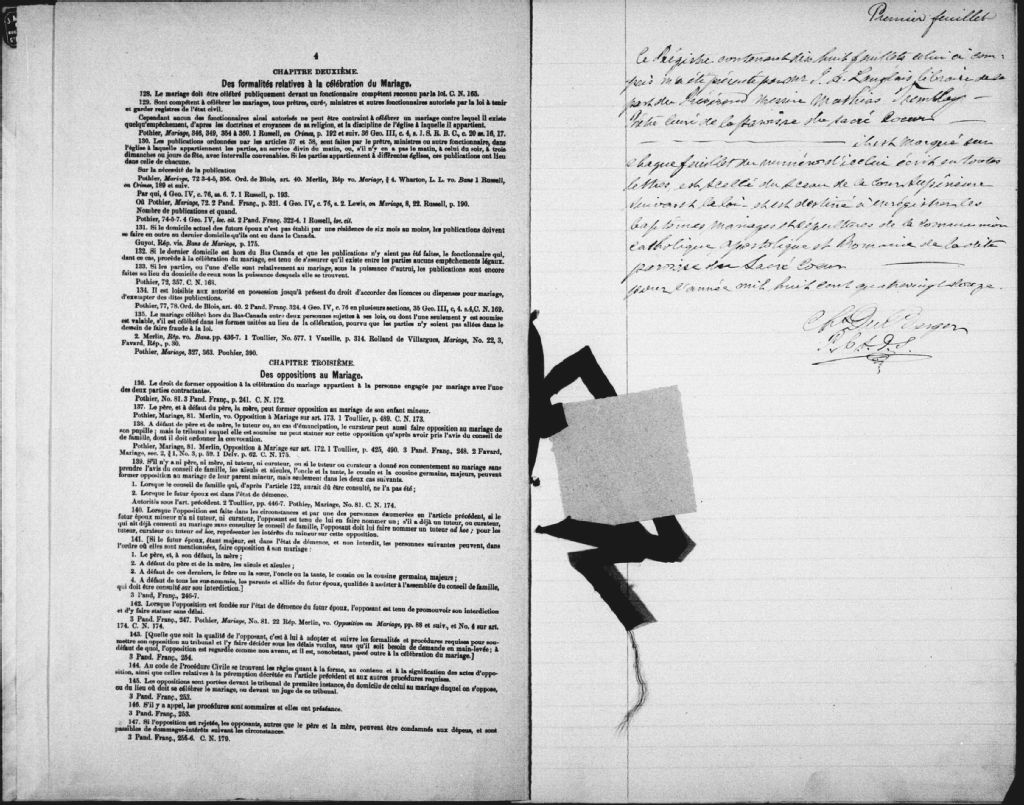 4
CHAPITRE DEUXIÈME.
Des formalités relatives à la célébration du Mariage.
128. Le mariage doit être célébré publiquement devant un fonctionnaire compétent reconnu par la loi. C. N. 165.
129. Sont compétents à célébrer les mariages, tous prêtres, curés, ministres et autres fonctionnaires autorisés par la loi à tenir
et garder registres de l'état civil.
Cependant aucun des fonctionnaires ainsi autorisés ne peut être contraint à célébrer un mariage contre lequel il existe
quelqu'empêchement, d'après les doctrines et croyances de sa religion, et la discipline de l'église à laquelle il appartient.
Pothier, Mariage, 346, 349, 354 à 360. 1 Russell, on Crimes, p. 192 et suiv. 36 Geo. III, c. 4, s. 1. S. R. B. C., c. 20 ss. 16, 17.
130. Les publications ordonnées par les articles 57 et 58, sont faites par le prêtre, ministre ou autre fonctionnaire, dans
l'église à laquelle appartiennent les parties, au service divin du matin, ou, s'il n'y en a pas le matin, à celui du soir, à trois
dimanches ou jours de fête, avec intervalle convenables. Si les parties appartiennent à différentes églises, ces publications ont lieu
dans celle de chacune.
Sur la nécessité de la publication
Pothier, Mariage, 72 3-4-5, 356. Ord. de Blois, art. 40. Merlin, Rép vo. Mariage, § 4. Wharton, L. L. vo. Bans 1 Russell,
on Crimes, 189 et suiv.
Par qui, 4 Geo. IV, c. 76, ss. 6. 7. 1 Russell, p. 193.
Où Pothier, Mariage, 72. 2 Pand. Franç., p. 321. 4 Geo. IV, c. 76, s. 2. Lewis, on Mariage, 8, 22. Russell, p. 190.
Nombre de publications et quand.
Pothier, 74-5-7. 4 Geo. IV, loc. cit. 2 Pand. Franç. 322-4. 1 Russell, loc. cit.
131. Si le domicile actuel des futurs époux n'est pas établi par une résidence de six mois au moins, les publications doivent
se faire en outre au dernier domicile qu'ils ont eu dans le Canada.
Guyot, Rép. vis. Bans de Mariage, p. 175.
132. Si le dernier domicile est hors du Bas Canada et que les publications n'y aient pas été faites, le fonctionnaire qui,
dans ce cas, procède à la célébration du mariage, est tenu de s'assurer qu'il existe entre les parties aucuns empêchements légaux.
133. Si les parties, ou l'une d'elles sont relativement au mariage, sous la puissance d'autrui, les publications sont encore
faites au lieu du domicile de ceux sous la puissance desquels elle se trouvent.
Pothier, 72, 357. C. N. 168.
134. Il est loisible aux autorité en possession jusqu'à présent du droit d'accorder des licences ou dispenses pour mariage,
d'exempter des dites publications.
Pothier, 77, 78. Ord. de Blois, art. 40. 2 Pand. Franç. 324. 4 Geo. IV, c. 76 en plusieurs sections, 35 Geo. III, c. 4. s.4, C. N. 169.
135. Le mariage célébré hors du Bas-Canada entre deux personnes sujettes à ses lois, ou dont l'une seulement y est soumise
est valable, s'il est célébré dans les formes usitées au lieu de la célébration, pourvu que les parties n'y soient pas allées dans le
dessein de faire fraude à la loi.
2. Merlin, Rép. vo. Bans. pp. 436-7. 1 Toullier, No. 577. 1 Vazeille, p. 314. Rolland de Villargues, Mariage, No. 22, 3,
Favard, Rép., p. 30.
Pothier, Mariage, 327, 363. Pouhier, 390.
CHAPITRE TROISIÈME.
Des oppositions au Mariage.
136. Le droit de former opposition à la célébration du mariage appartient à la personne engagée par mariage avec l'une
des deux parties contractantes.
Pothier, No. 81. 3 Pand. Franç., p. 241. C. N. 172.
137. Le père, et à défaut du père, la mère, peut former opposition au mariage de son enfant mineur.
Pothier, Mariage, 81. Merlin, vo. Opposition à Mariage sur art. 173. 1 Toullier, p. 489. C. N. 173.
138. A défaut de père et de mère, le tuteur ou, au cas d'émancipation, le curateur peut aussi faire opposition au mariage de
son pupille ; mais le tribunal auquel elle est soumise ne peut statuer sur cette opposition qu'après avoir pris l'avis du conseil de
de famille, dont il doit ordonner la convocation.
Pothier, Mariage, 81. Merlin, Opposition à Mariage sur art. 172. 1 Toullier, p. 425, 490. 3 Pand. Franç., 248. 2 Favard,
Mariage, sec. 2, § 1, No. 3, p. 59. 1 Delv. p. 62. C. N. 175.
139. S'il n'y a ni père, ni mère, ni tuteur, ni curateur, ou si le tuteur ou curateur a donné son consentement au mariage sans
prendre l'avis du conseil de famille, les aïeuls et aïeules, l'oncle et la tante, le cousin et la cousine germains, majeurs, peuvent
former opposition au mariage de leur parent mineur, mais seulement dans les deux cas suivants.
1. Lorsque le conseil de famille qui, d'après l'article 122, aurait dû être consulté, ne l'a pas été ;
2. Lorsque le futur époux est dans l'état de démence.
Autorités sous l'art. précédent. 2 Toullier, pp. 446-7. Pothier, Mariage, No. 81. C. N. 174.
140. Lorsque l'opposition est faite dans les circonstances et par une des personnes énumérées en l'article précédent, si le
futur époux mineur n'a ni tuteur, ni curateur, l'opposant est tenu de lui en faire nommer un ; s'il a déjà un tuteur, ou curateur,
qui ait déjà consenti au mariage sans consulter le conseil de famille, l'opposant doit lui faire nommer un tuteur ad hoc ; pour les
tuteur, curateur ou tuteur ad hoc, représenter les intérêts du mineur sur cette opposition.
141. [Si le futur époux, étant majeur, est dans l'état de démence, et non interdit, les personnes suivantes peuvent, dans
l'ordre où elles sont mentionnées, faire opposition à son mariage :
1. Le père, et, à son défaut, la mère ;
2. A défaut du père et de la mère, les aïeuls et aïeules ;
3. A défaut de ces derniers, le frère ou la sœur, l'oncle ou la tante, le cousin ou la cousine germains, majeurs ;
4. A défaut de tous les sus-nommés, les parents et alliés du futur époux, qualifiés à assister à l'assemblée du conseil de famille,
qui doit être consulté sur son interdiction.]
3 Pand, Franç., 246-7.
142. Lorsque l'opposition est fondée sur l'état de démence du futur époux, l'opposant est tenu de promouvoir son interdiction
et d'y faire statuer sans délai.
3 Pand. Franç., 247. Pothier, Mariage, No. 81. 22 Rép. Merlin, vo. Opposition au Mariage, pp. 88 et suiv., et No. 4 sur art.
174. C. N. 174.
143. [Quelque que soit la qualité de l'opposant, c'est à lui à adopter et suivre les formalités et procédures requises pour sou-
mettre son opposition au tribunal et l'y faire décider sous les délais voulus, sans qu'il soit besoin de demande en main-levée ; à
défaut de quoi, l'opposition est regardée comme non avenu, et il est, nonobstant, passé outre à la célébration du mariage.]
3 Pand. Franç., 254.
144. Au code de Procédure Civile se trouvent les règles quant à la forme, au contenu et à la signification des actes d'oppo-
sition, ainsi que celles relatives à la péremption décrétée en l'article précédent et aux autres procédures requises.
145. Les oppositions sont portées devant le tribunal de première instance, du domicile de celui au mariage duquel on s'oppose,
ou du lieu où doit se célébrer le mariage, ou devant un juge de ce tribunal.
3 Pand. Franç., 253.
146. S'il y a appel, les procédures sont sommaires et elles ont préséance.
3 Pand. Franç., 253.
147. Si l'opposition est rejetée, les opposants, autres que le père et la mère, peuvent être condamnés aux dépens, et sont
passibles de dommages-intérêts suivant les circonstances.
3 Pand. Franç., 255-6. C. N. 179.
Premier feuillet
Ce Régistre contenant dix huit feuillets celui ci com-
pris m'a été présenté par J. A. Langlais libraire de la
part du Révérend messire Mathias Tremblay
Prêtre curé de la paroisse du Sacré Coeur
il est marqué sur
chaque feuillet du numéro d'icelui écrit en toutes
lettres, est scellé du sceau de la Cour Supérieure
suivant la loi et est destiné à enregistrer les
baptêmes mariages et sépultures de la communion
catholique apostolique et Romaine de la dite
paroisse du Sacré Coeur
pour l'année mil huit cent quatre vingt douze.
P. C. S. D. S.